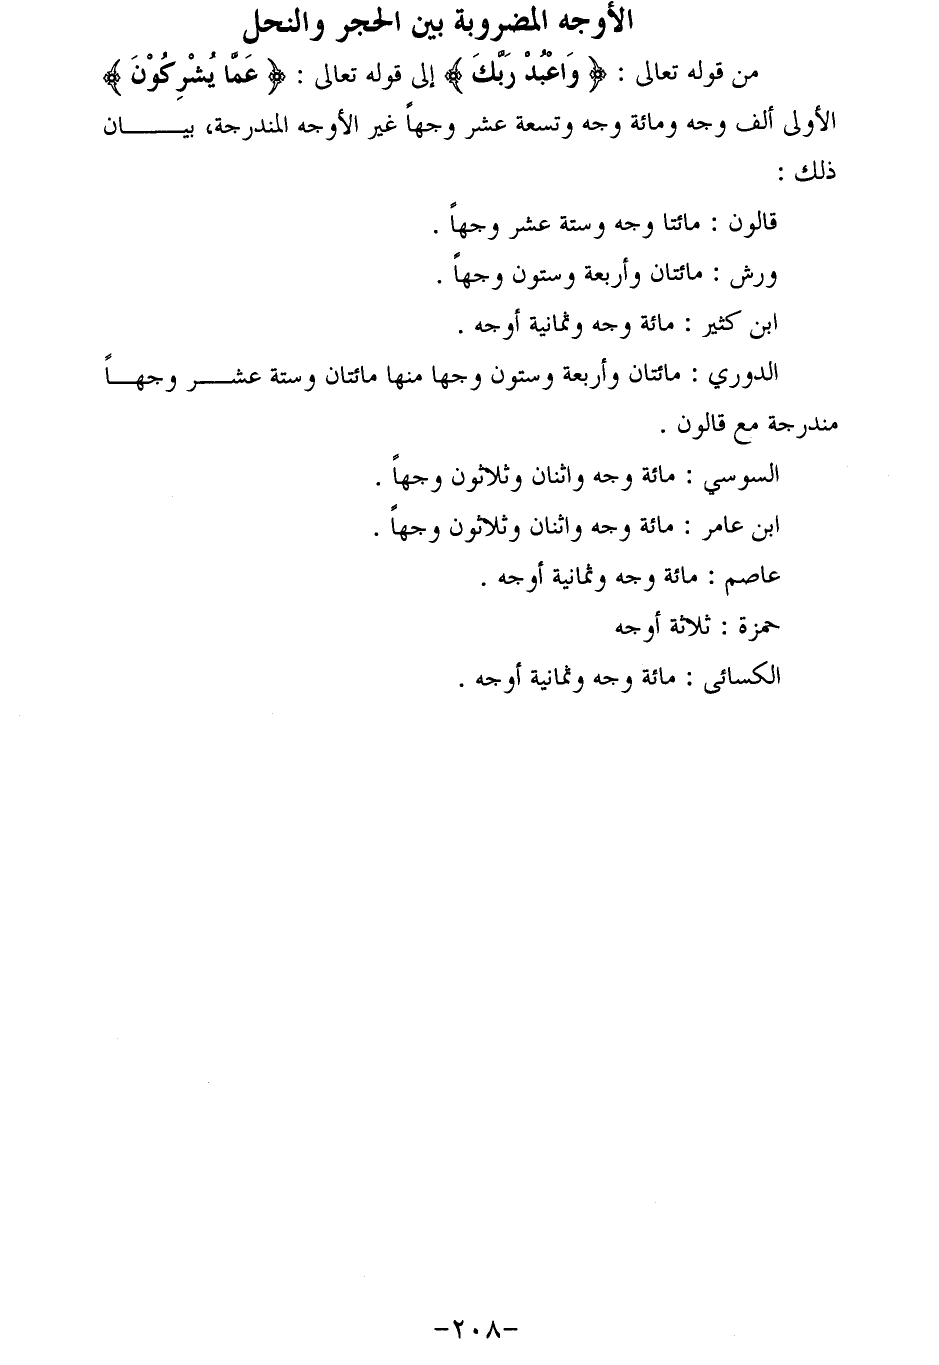 الأوجه المضروبة بين الحجر والنحل
من قوله تعالى : ﴿ وَاعْبُدْ رَبَّكَ ﴾ إلى قوله تعالى : ﴿ عَمَّا يُشْرِكُوْنَ ﴾
الأولى ألف وجه ومائة وجه وتسعة عشر وجهاً غير الأوجه المندرجة، بيـــــان
ذلك :
قالون : مائتا وجه وستة عشر وجهاً .
ورش : مائتان وأربعة وستون وجهاً .
ابن كثير : مائة وجه وثمانية أوجه .
الدوري : مائتان وأربعة وستون وجها منها مائتان وستة عشـــر وجهـــاً
مندرجة مع قالون .
السوسي : مائة وجه واثنان وثلاثون وجهاً .
ابن عامر : مائة وجه واثنان وثلاثون وجهاً .
عاصم : مائة وجه وثمانية أوجه .
حمزة : ثلاثة أوجه
الكسائى : مائة وجه وثمانية أوجه .
-٢٠٨-